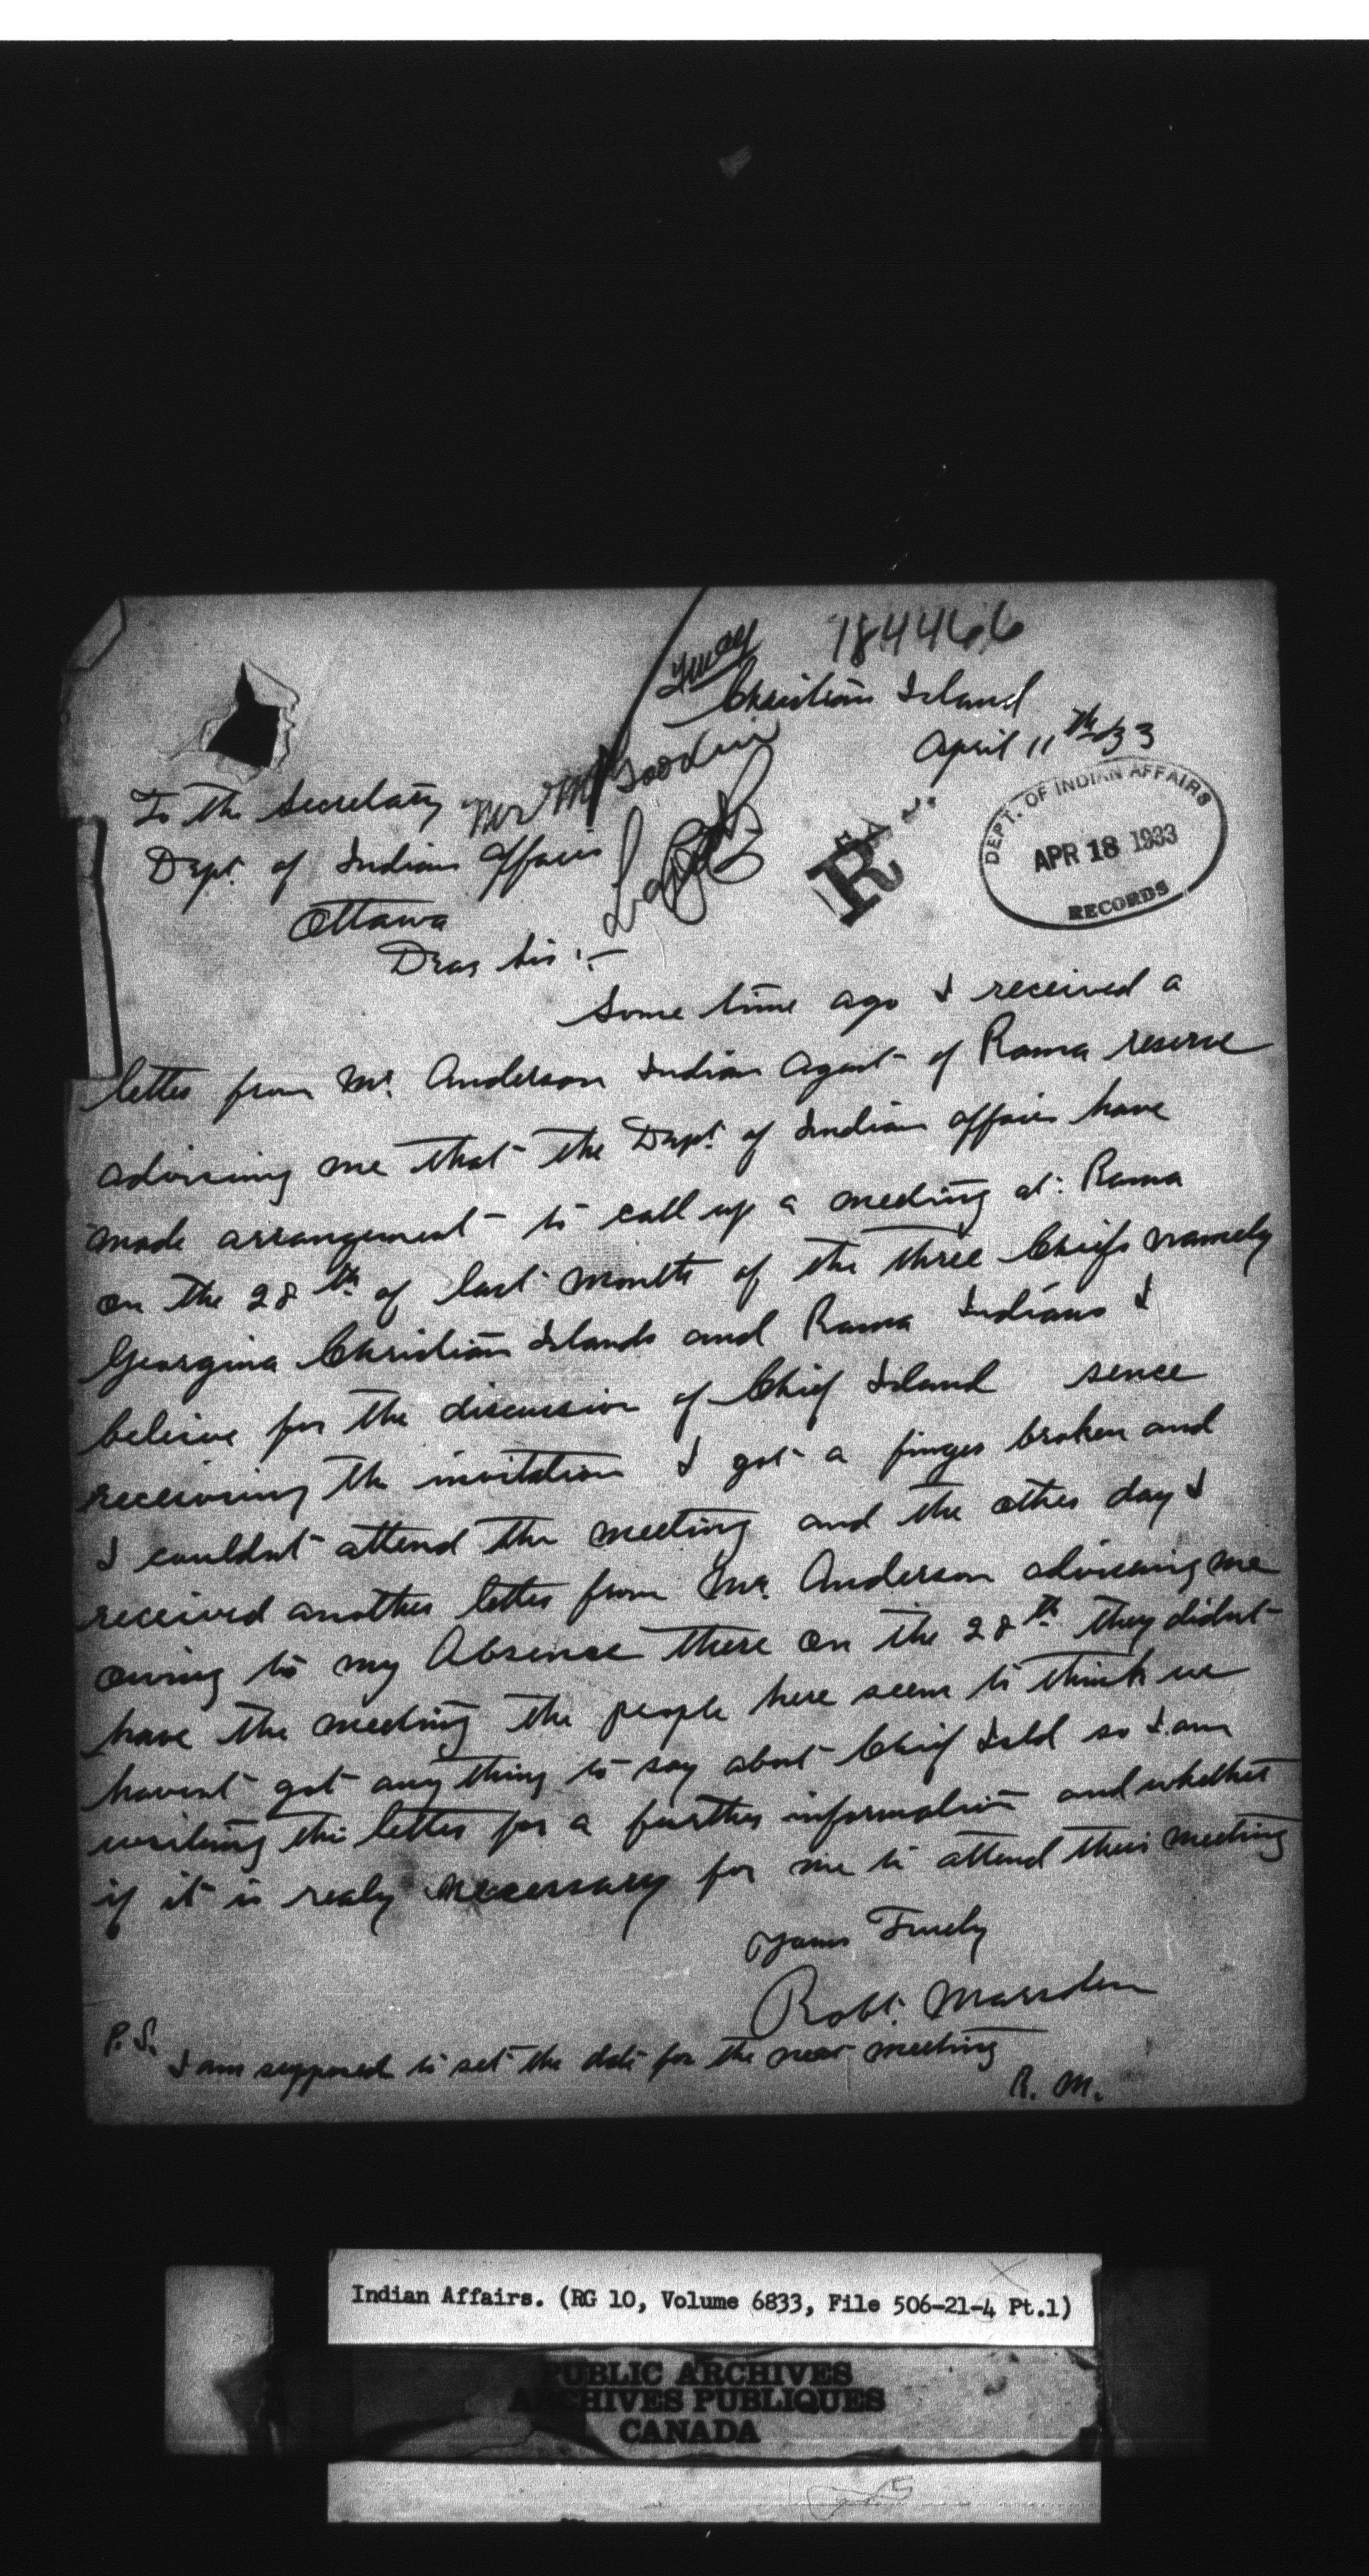 184466
Christian Island
April 11th/33
To The Secretary
Mr Mc
Dept. of Indian Affairs
Ottawa
DEPT. OF INDIAN AFFAIRS
APR 18 1933
RECORDS
R
Dear Sir :-
Some time ago I received a
letter from Mr. Anderson Indian Agent of Rama reserve
advising me that the Dept. of Indian affairs have
made arrangement to call up a meeting at Rama
on the 28th of last month of the three Chiefs namely
Georgina Christian Islands and Rama Indians I
believe for the discussion of Chief Island sence
receiving the invitation I got a finger broken and
I couldnt attend the meeting and the other day I
received another letter from Mr. Anderson advising me
owing to my Absence there on the 28th they didnt
have the meeting the people here seem to think we
havent got any thing to say about Chief Isld so I am
writing this letter for a further information and whether
if it is realy necessary for me to attend this meeting
Yours Truely
Robt. Marsden
P.S.
I am supposed to set the date for the next meeting
R. M.
Indian Affairs. (RG 10, Volume 6833, File 506-21-4 Pt.1)
PUBLIC ARCHIVES
ARCHIVES PUBLIQUES
CANADA